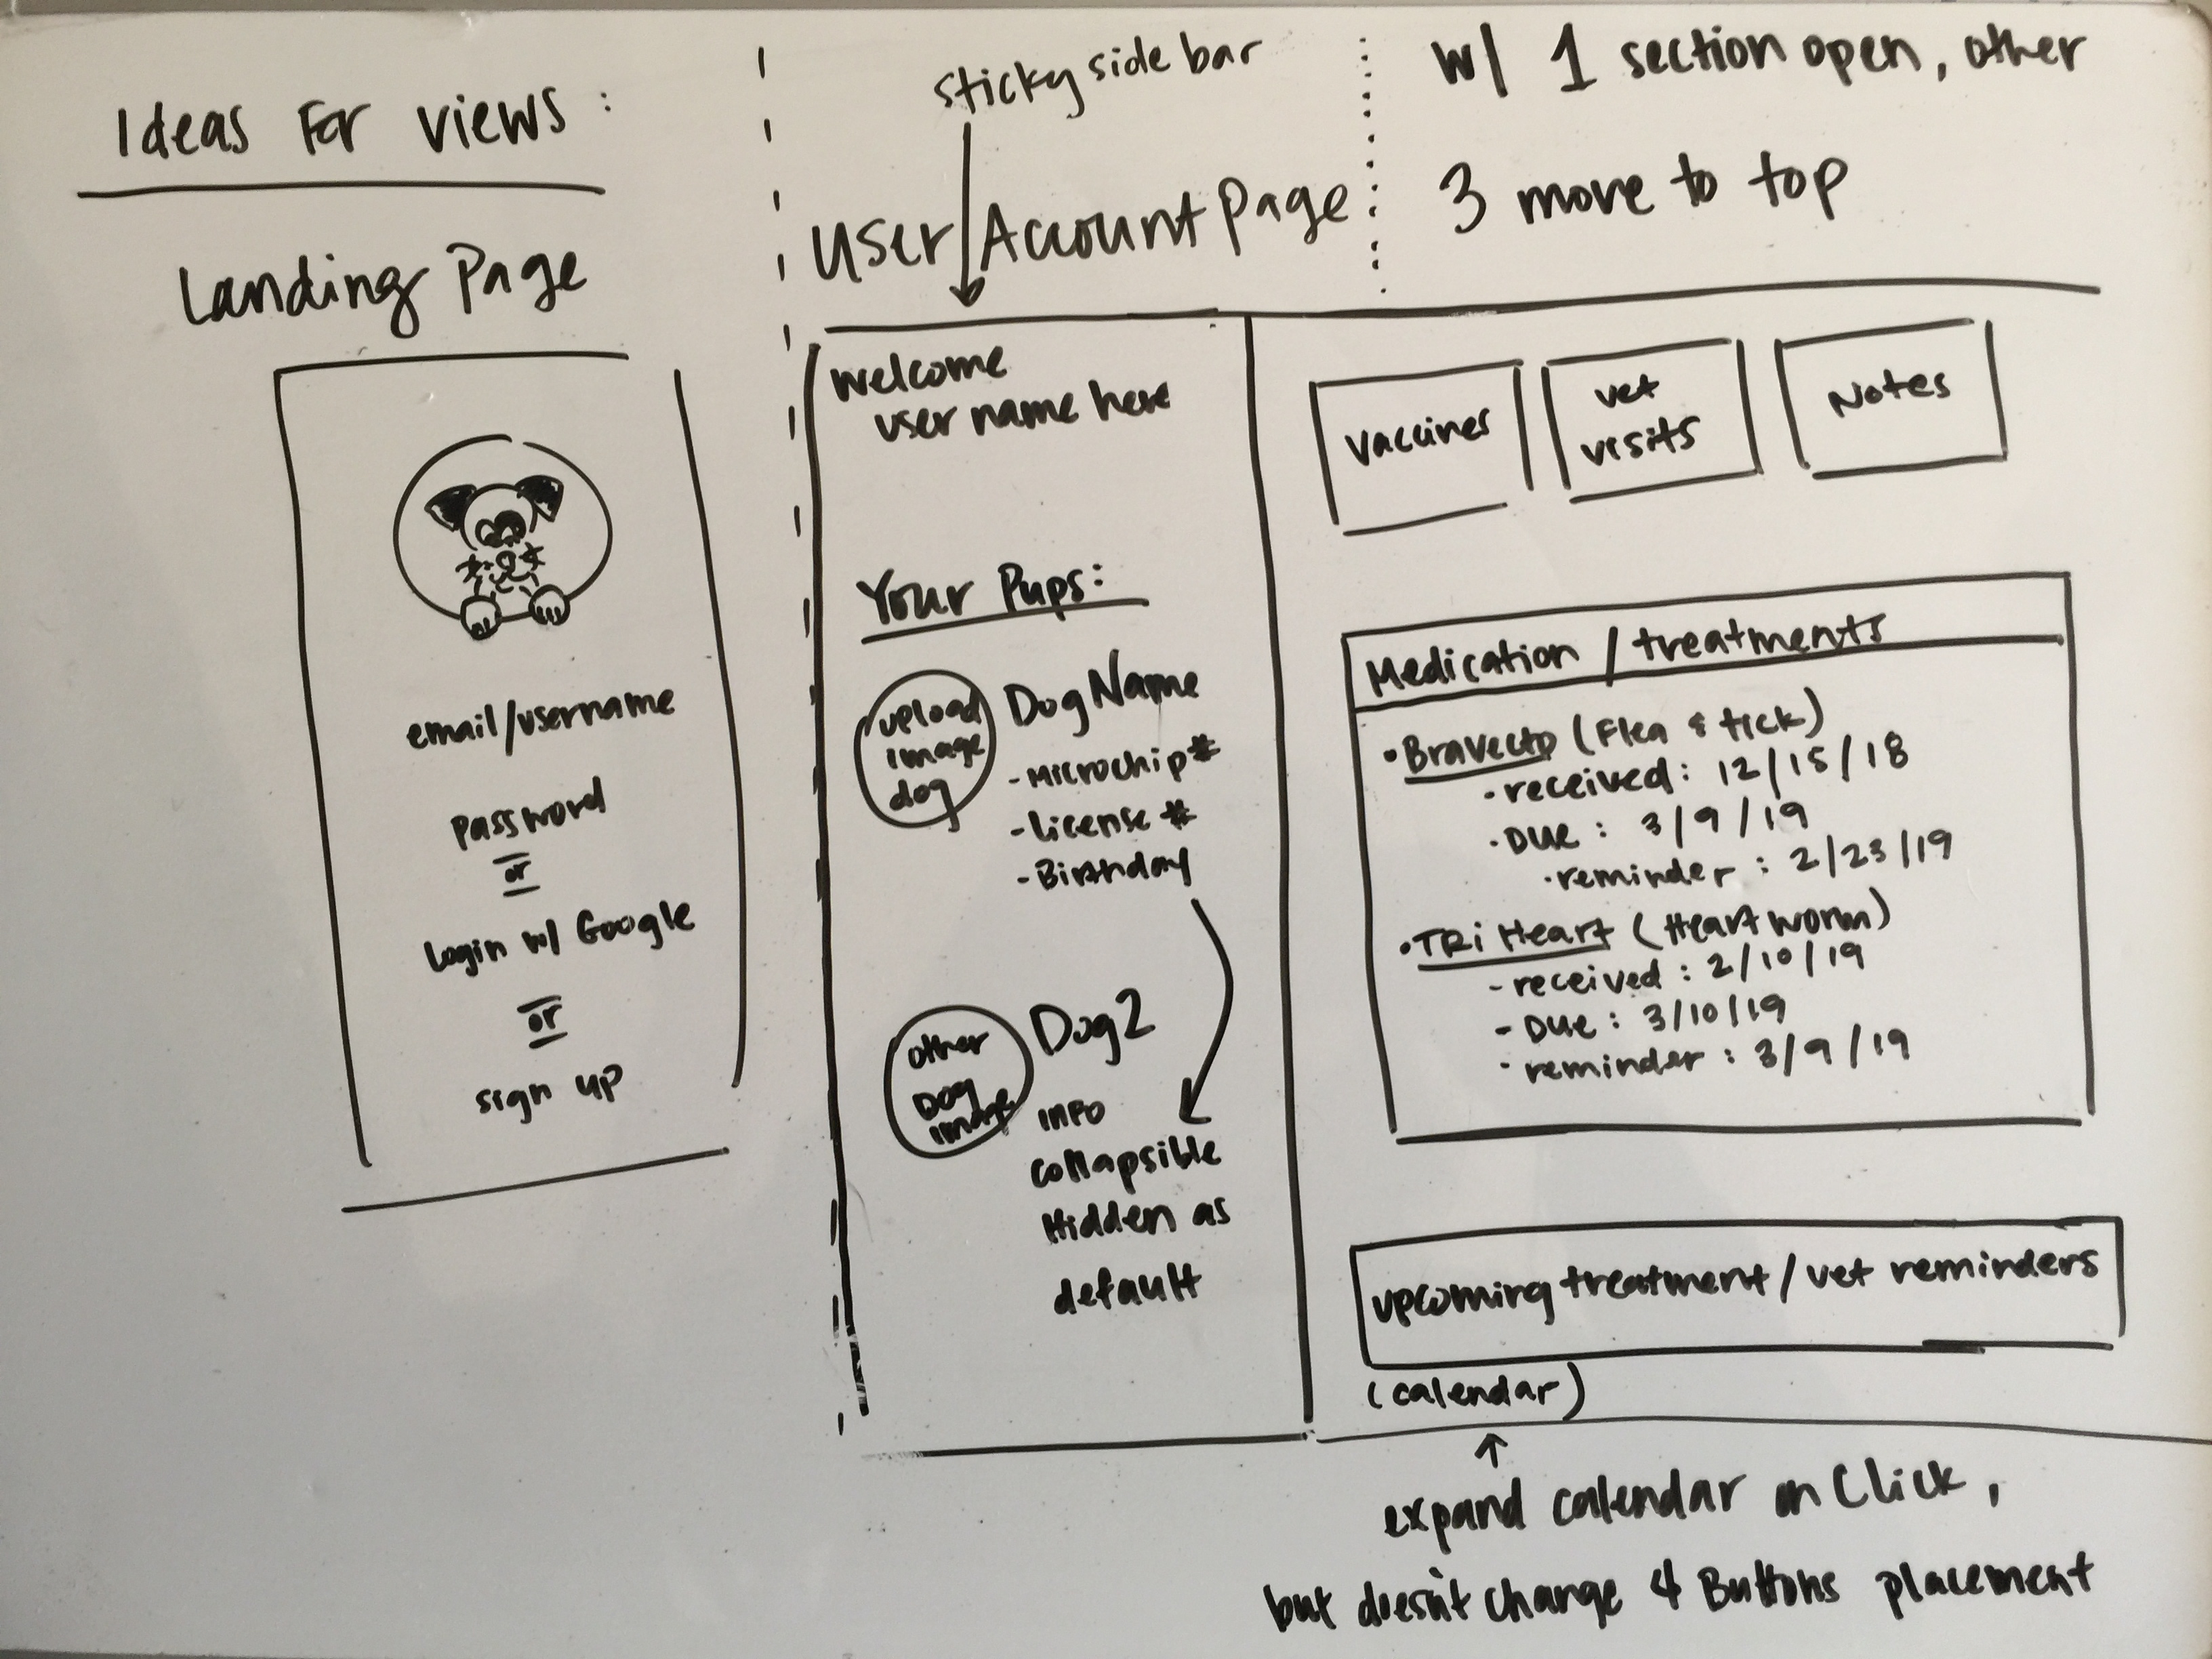 Ideas For views:
Landing Page
email/username
password
or
login w/ Google
or
sign up
sticky side bar
User/Account Page
welcome
user name here
Your Pups:
upload
image
dog
Dog Name
- Microchip #
- License #
- Birthday
other
Dog
image
Dog 2
INFO
collapsible
Hidden as
default
w/ 1 section open, other
3 move to top
vaccines
vet
visits
Notes
Medication / treatments
• Bravecto (Flea & tick)
• received: 12/15/18
• Due: 3/9/19
• reminder: 2/23/19
• TRi Heart (Heart worm)
- received: 2/10/19
- Due: 3/10/19
• reminder: 3/9/19
upcoming treatment/vet reminders
(calendar)
expand calendar on Click,
but doesn't change 4 Buttons placement